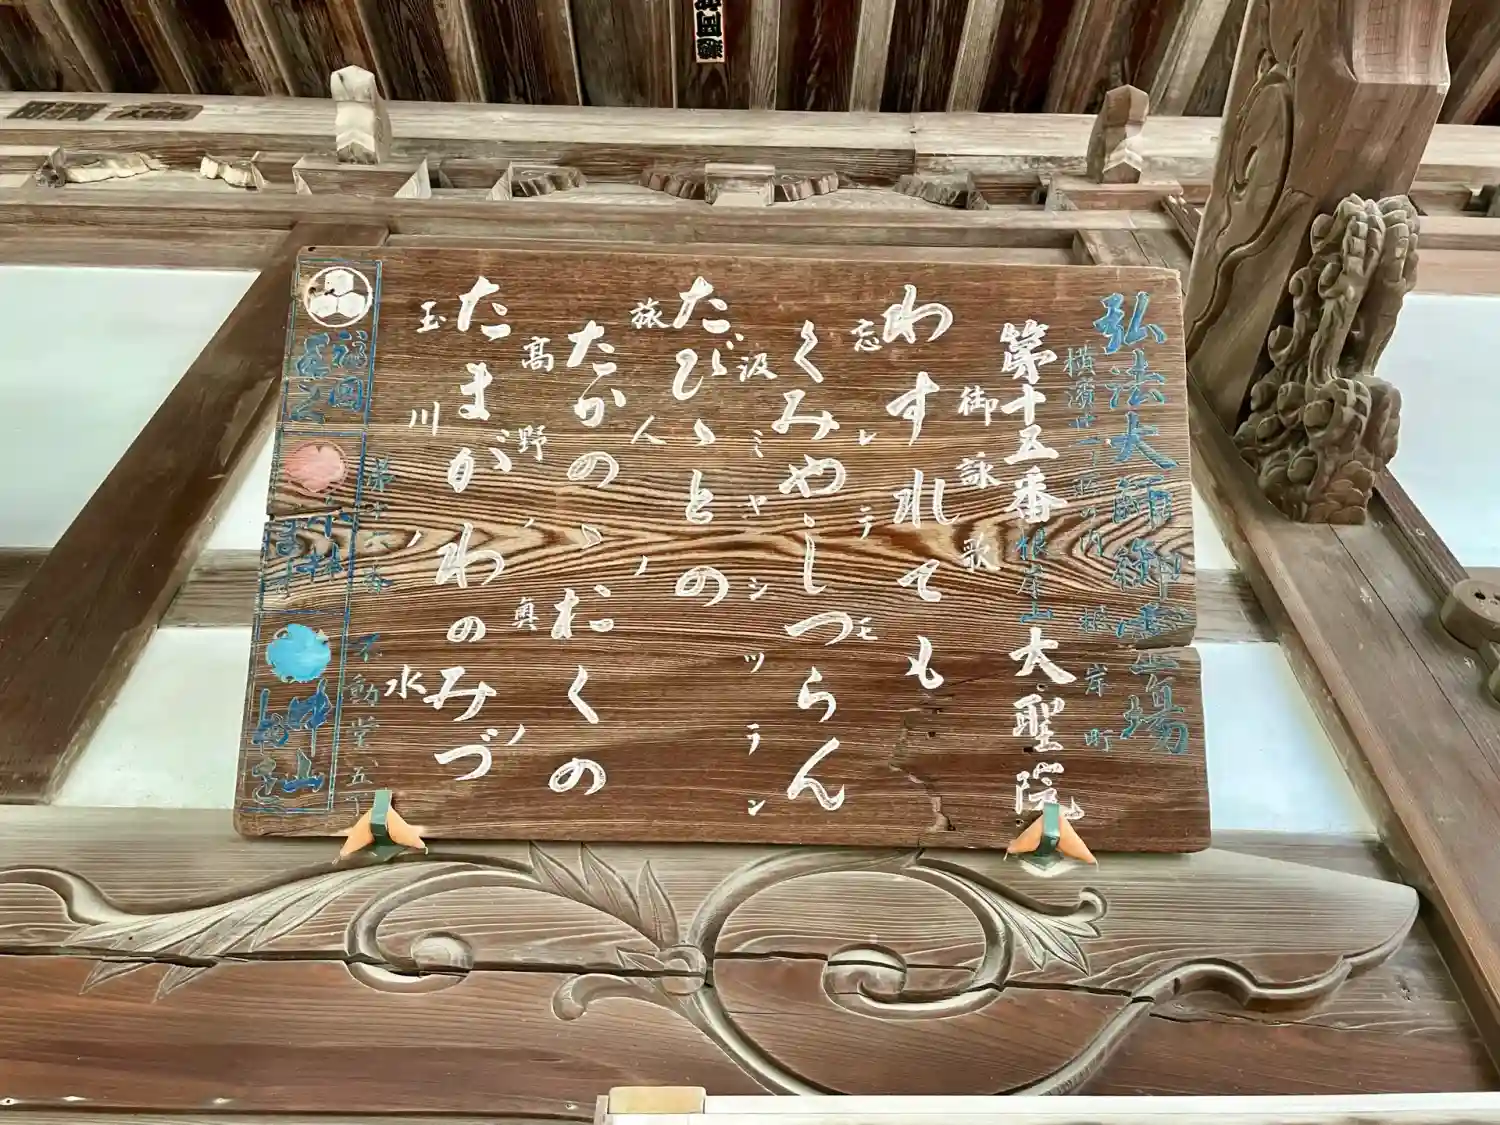 弘法大師御霊場
横濱廿一ヶ所の内 根岸町
第十五番 根岸山 大聖院
御詠歌
わすれても
忘レテモ
くみやしつらん
汲ミヤシツラン
たびゝとの
旅人ノ
たかのゝおくの
高野ノ奥ノ
たまがわのみづ
玉川ノ水
第十六番 不動堂五丁
福田
小林
中山